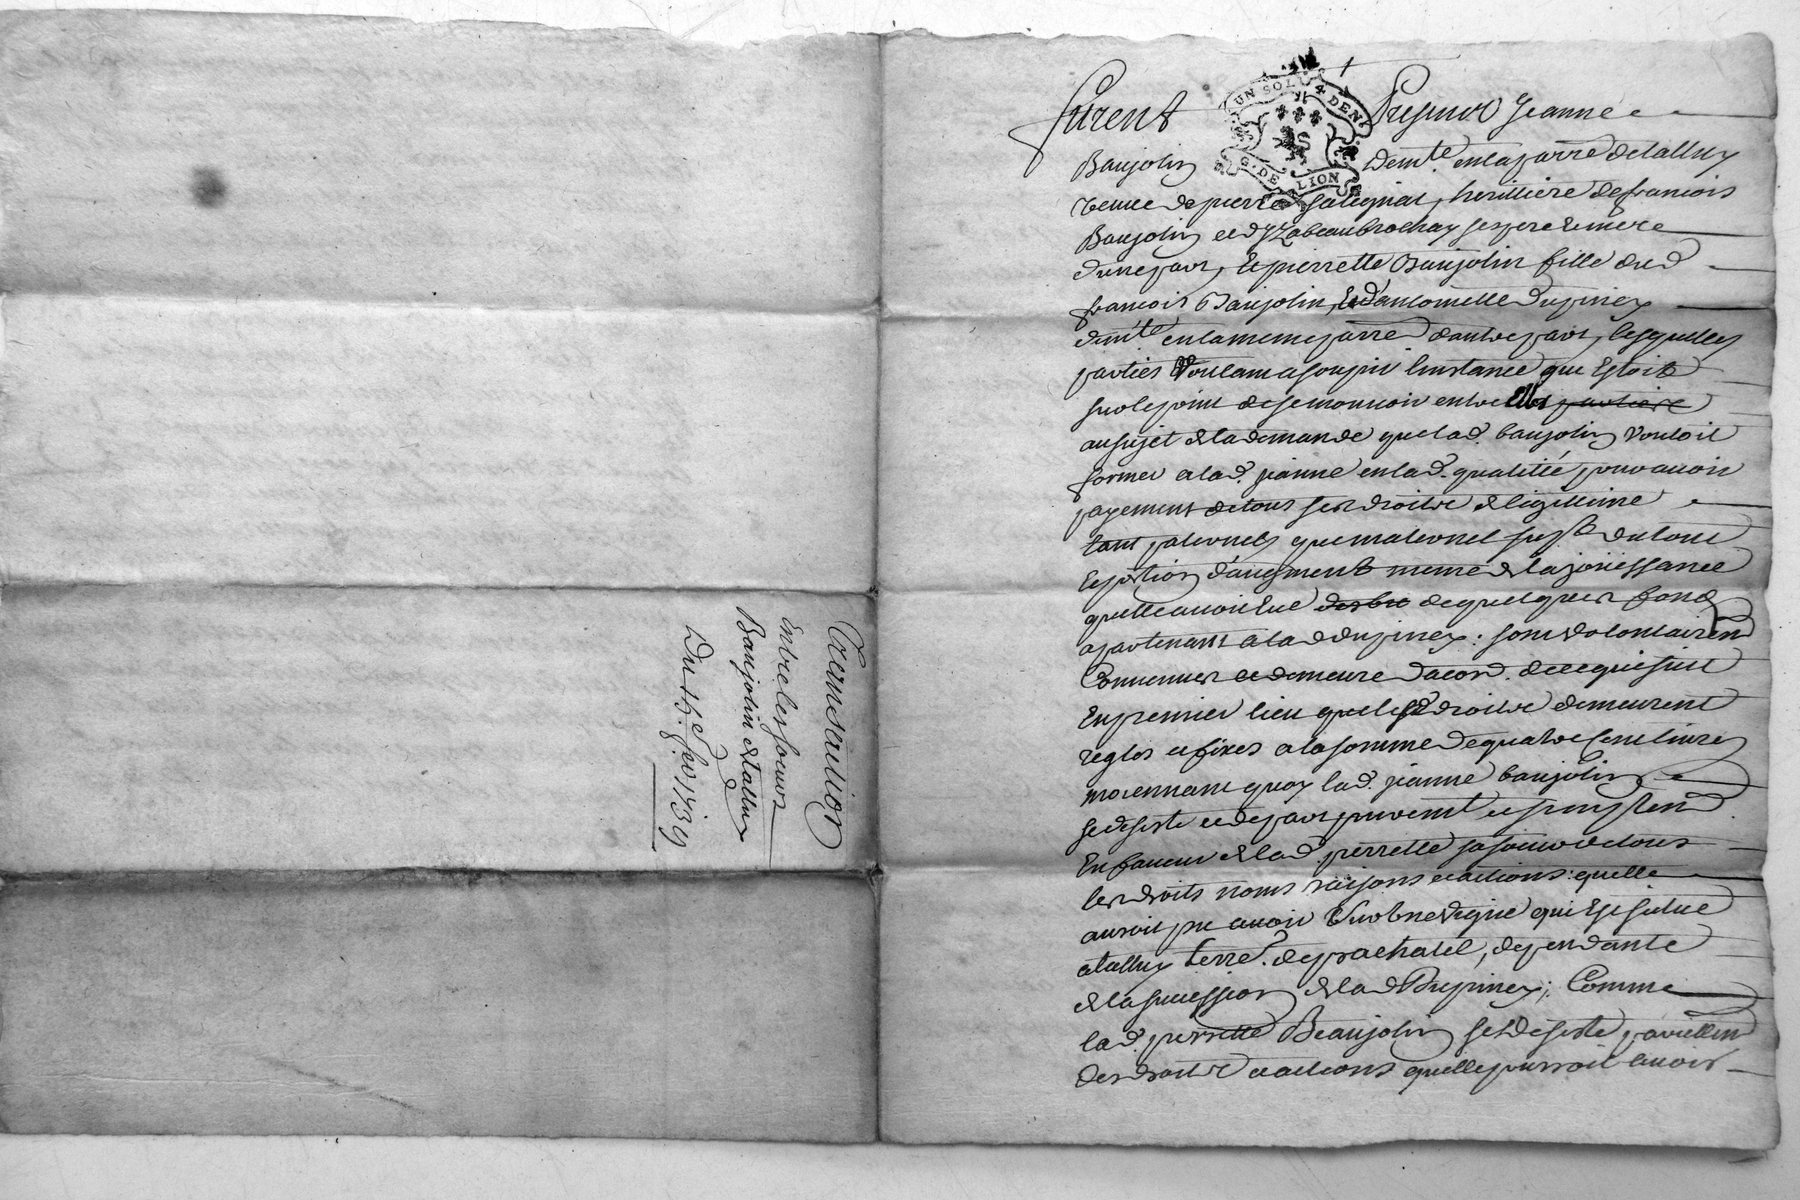 Transaction
Entre les soeurs
Baujolin de tallux
Du 15e. fev 1739
UN SOL 4 DEN
G. DE LION
furent Presents Jeanne
Baujolin demte. en la parre de tallux
veuve de pierre salignat, heritiere de francois
Baujolin et d yzabeau brochay ses pere et mere
d une part, Et pierrette Baujolin fille dud
francois Baujolin, Et d antoinette Dupinex
demte en la meme parre d autre part, lesquelles
parties Voulant asoupir l instance qui Estoit
sur le point de se mouvoir entre Elles
au sujet de la demande que lad. baujolin vouloit
former a lad. jeanne en lad. qualitté pour avoir
payement de tous ses droits de legitime
tant paternels que maternel supt. du tout
Et portion d augment meme de la joüissance
quelle avoit Eue de quelques fond
apartenant a lad Dupinex. sont volontairem
Convenues et demeure dacord. de ce qui suit
En premier lieu que lesd droits demeurent
regles et fixes a la somme de quatre Cent livres
moiennant quoy lad. jeanne baujolin
se desiste et depart purement et simplem
En faveur de lad. pierrette sa soeur de tous
les droits noms raisons et actions quelle
auroit pu avoir sur une vigne qui Est situe
a tallux terre. de prachatel, dependante
de la succession de lad Dupinex; Comme
lad. pierrette Beaujolin se desiste pareillem
des droits et actions quelle pourroit avoir